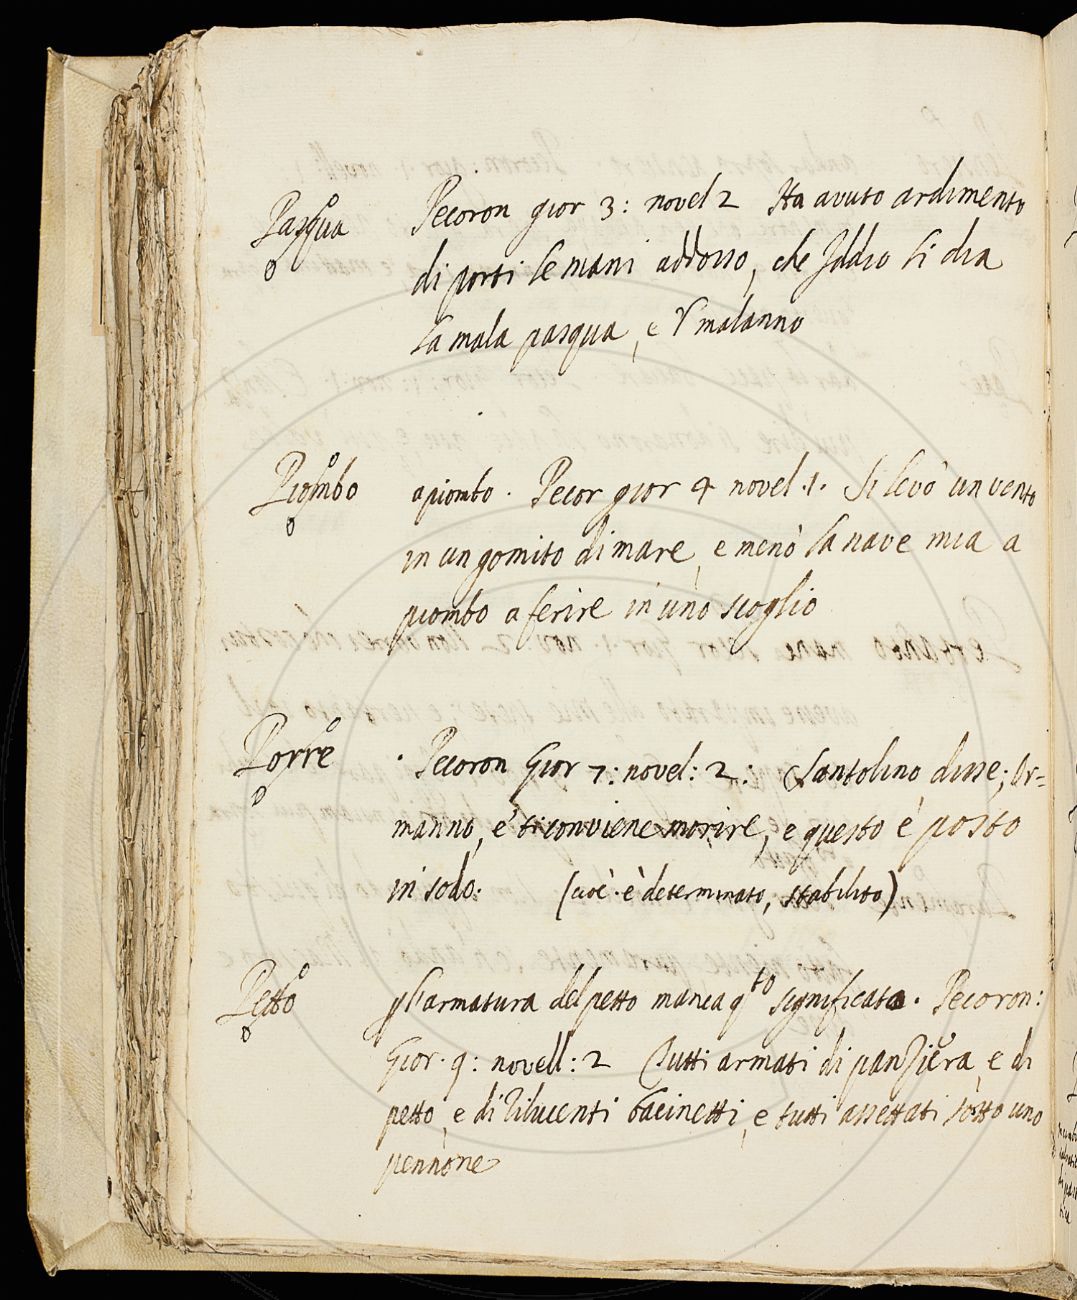 Pasqua Pecoron gior 3: novel 2 Ha avuto ardimento
di porti le mani addosso, che Iddio li dia
la mala pasqua, e 'l malanno
Piombo a piombo. Pecor gior 4 novel. 1. Si levò un vento
in un gomito di mare, e menò la nave mia a
piombo a ferire in uno scoglio
Porre Pecoron Gior 7: novel: 2: Santolino disse; Or=
manno, e' ti conviene morire, e questo è posto
in sodo: (cioè è determinato, stabilito)
Petto p l'armatura del petto manca q.to significato. Pecoron:
Gior. 9: novell: 2 Tutti armati di panziera, e di
petto, e di rilucenti bacinetti, e tutti assettati sotto uno
pennone